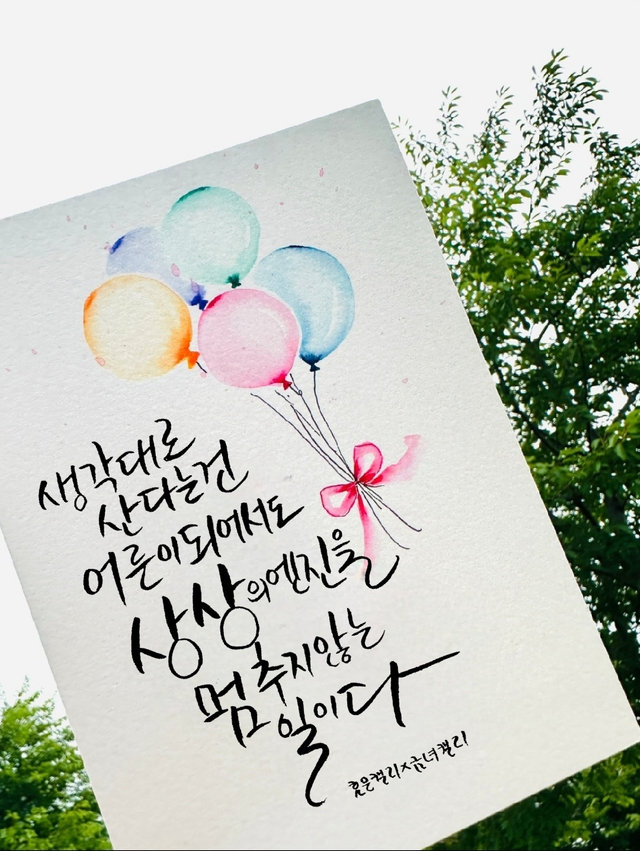 생각대로
산다는건
어른이되어서도
상상의엔진을
멈추지않는
일이다
흼은캘리x금녀캘리